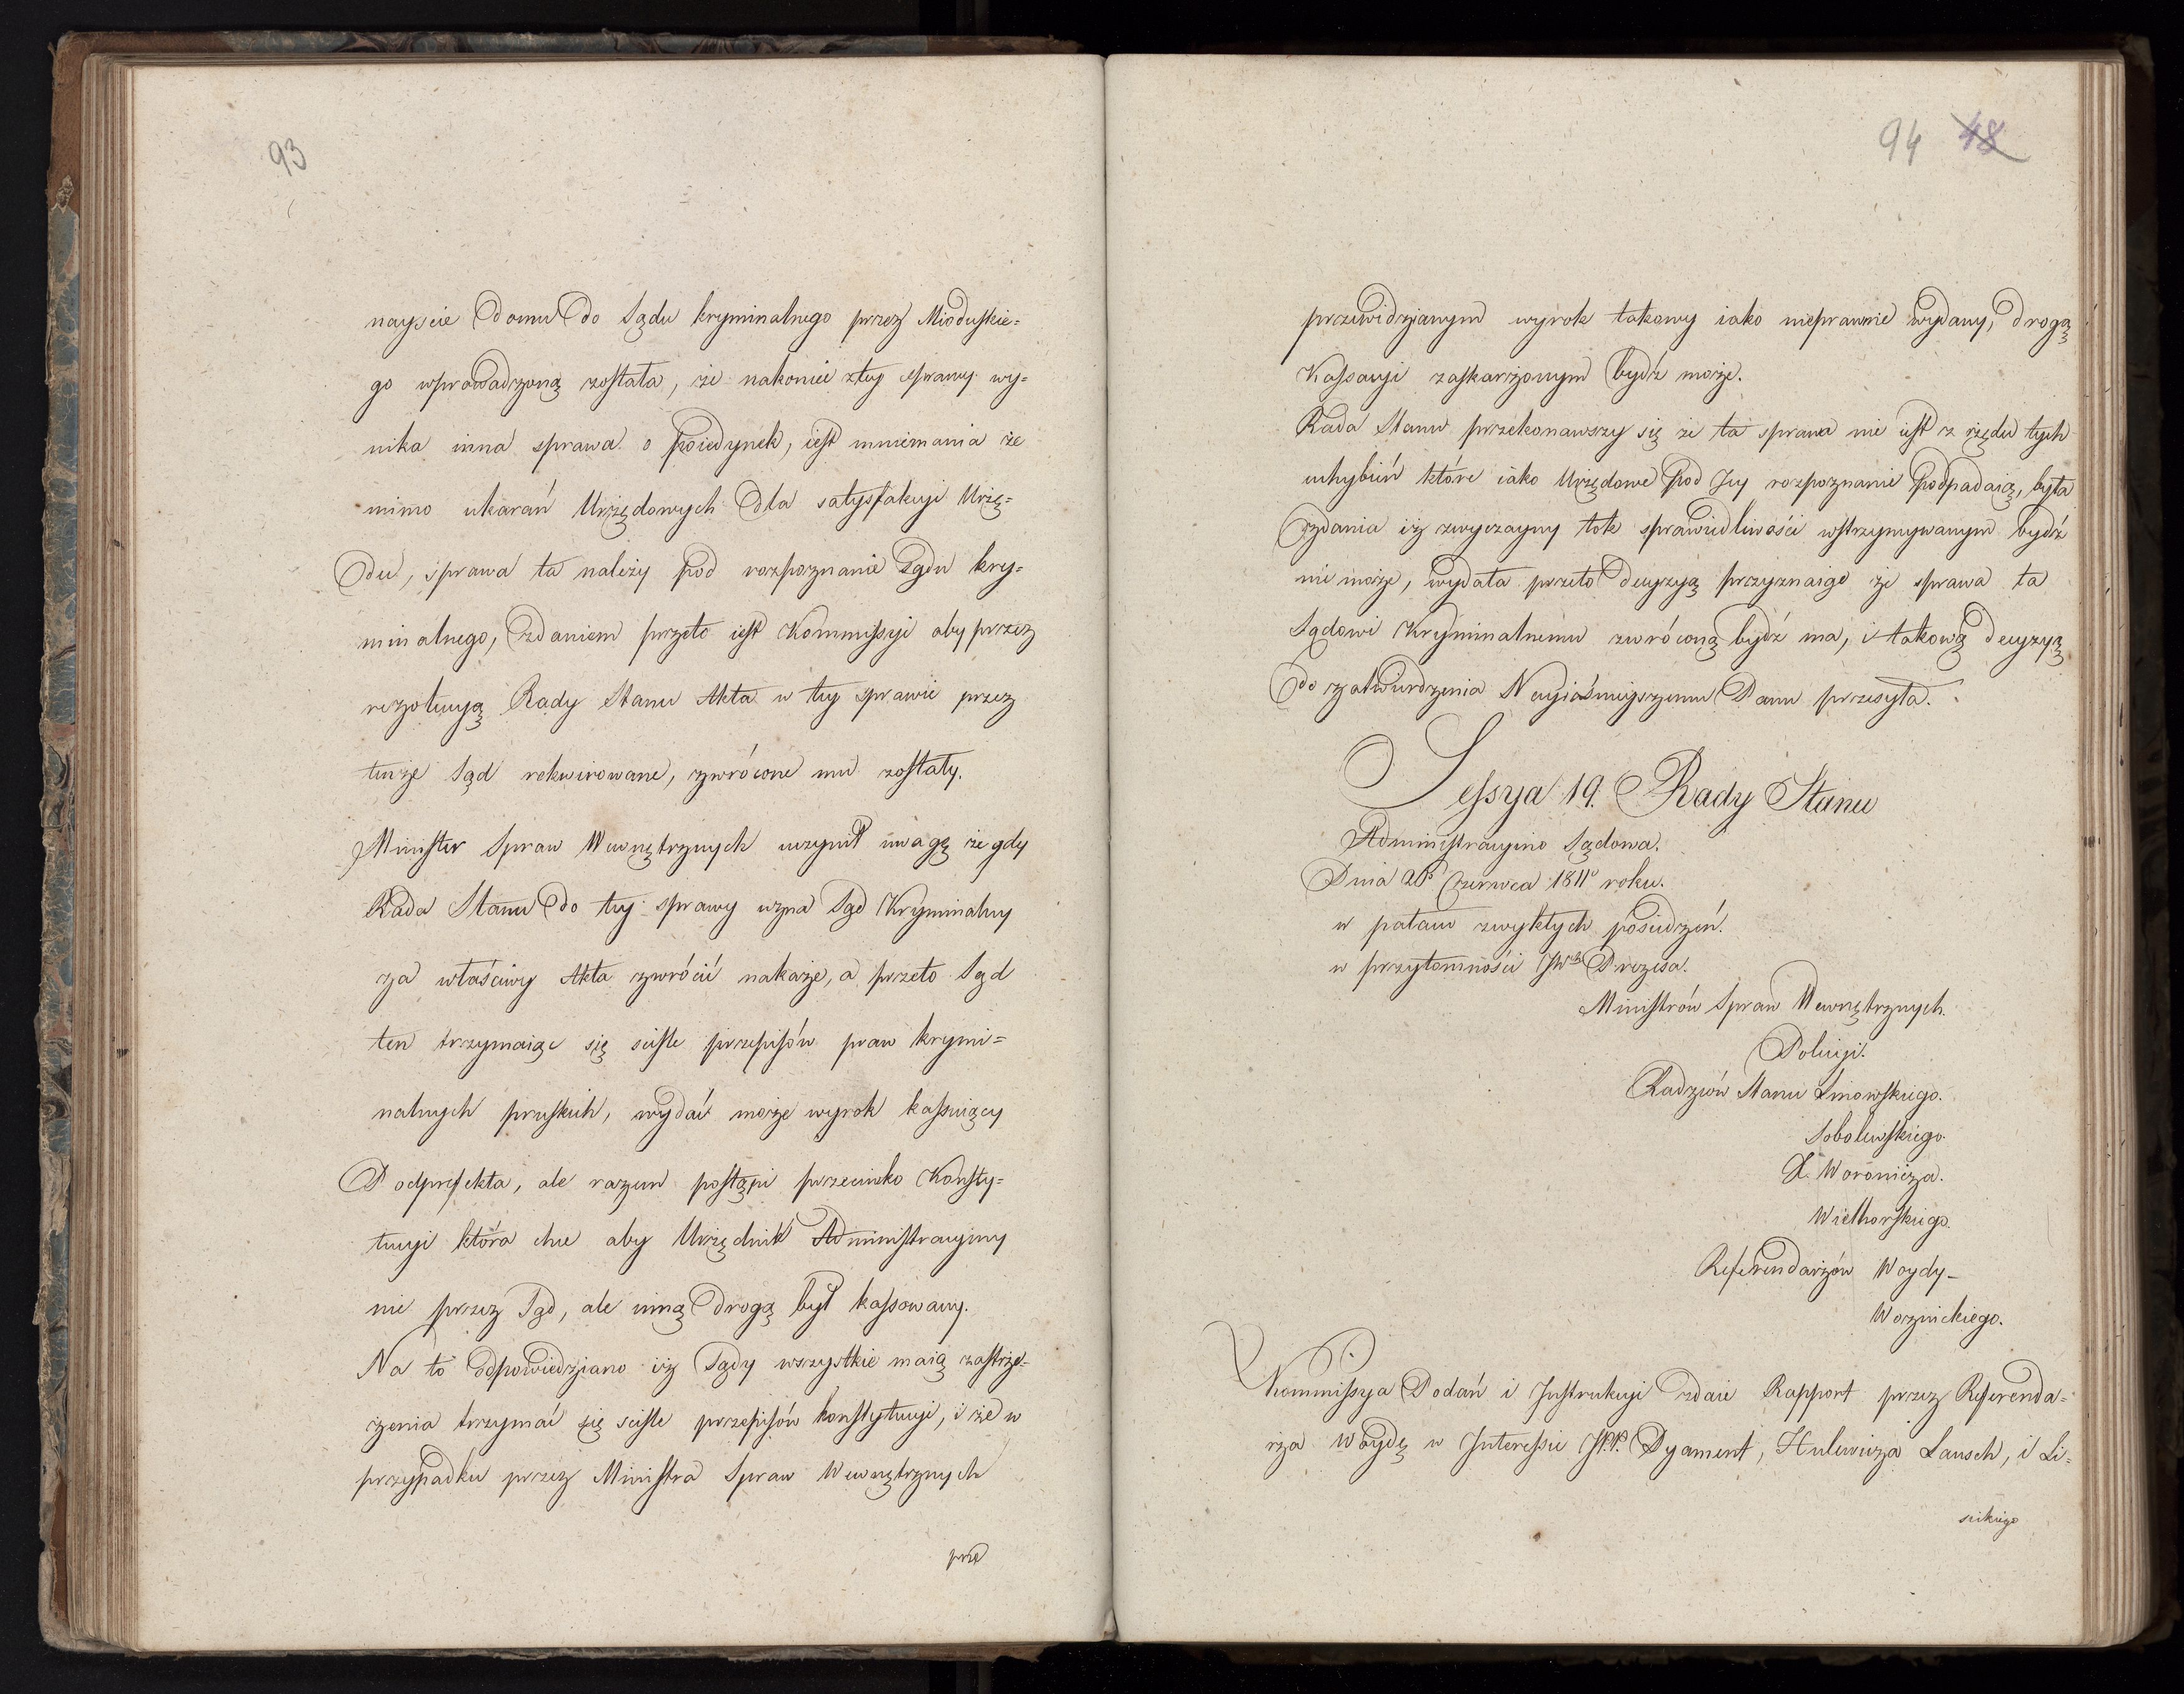 93
nayscie domu do Sądu kryminalnego przez Mioduskie=
go wprowadzoną została, że nakoniec z tey sprawy wy=
nika inna sprawa o Poiedynek, iest mniemania że
mimo ukarań Urzędowych dla satysfakcyi Urzę=
du, sprawa ta należy pod rozpoznanie Sądu kry=
minalnego, zdaniem przeto iest Kommissyi aby przez
rezolucyą Rady Stanu Akta w tey sprawie przez
tenże Sąd rekwirowane, zwrócone mu zostały.
Minister Spraw Wewnętrznych uczynił uwagę że gdy
Rada Stanu do tey sprawy uzna Sąd Kryminalny
za właściwy Akta zwrócić nakaże, a przeto Sąd
ten trzymaiąc się scisle przepisów praw krymi=
nalnych pruskich, wydać może wyrok kassuiący
Podprefekta, ale razem postąpi przeciwko Konsty=
tucyi która chce aby Urzędnik Administracyiny
nie przez Sąd, ale inną drogą był kassowany.
Na to odpowiedziano iż Sądy wszystkie maią zastrze=
żenia trzymać się scisle przepisów konstytucyi, i że w
przypadku przez Ministra Spraw Wewnętrznych
prze
94 48
przewidzianym wyrok takowy iako nieprawnie wydany, drogą
Kassacyi zaskarżonym bydź może.
Rada Stanu przekonawszy się że ta sprawa nie iest z rzędu tych
uchybień które iako Urzędowe pod Jey rozpoznanie podpadaią, była
zdania iż zwyczayny tok sprawiedliwości wstrzymywanym bydź
nie może, wydała przeto decyzyą przyznaiąc że sprawa ta
Sądowi Kryminalnemu zwróconą bydź ma, i takową decyzyą
do zatwierdzenia Nayiaśnieyszemu Panu przesyła.
Sessya 19. Rady Stanu
Administracyino Sądowa.
Dnia 26º Czerwca 1811º roku.
w pałacu zwykłych posiedzeń.
w przytomności JWch Prezesa.
Ministrów Spraw Wewnętrznych.
Policyi.
Radzców Stanu Linowskiego.
Sobolewskiego.
X. Woronicza.
Wielhorskiego.
Referendarzów Woydy-
Woznickiego.
Kommissya Podań i Instrukcyi zdaie Rapport przez Referenda=
rza Woydę w Interessie JPP. Dyament, Hulewicza Lausch, i Li=
sickiego